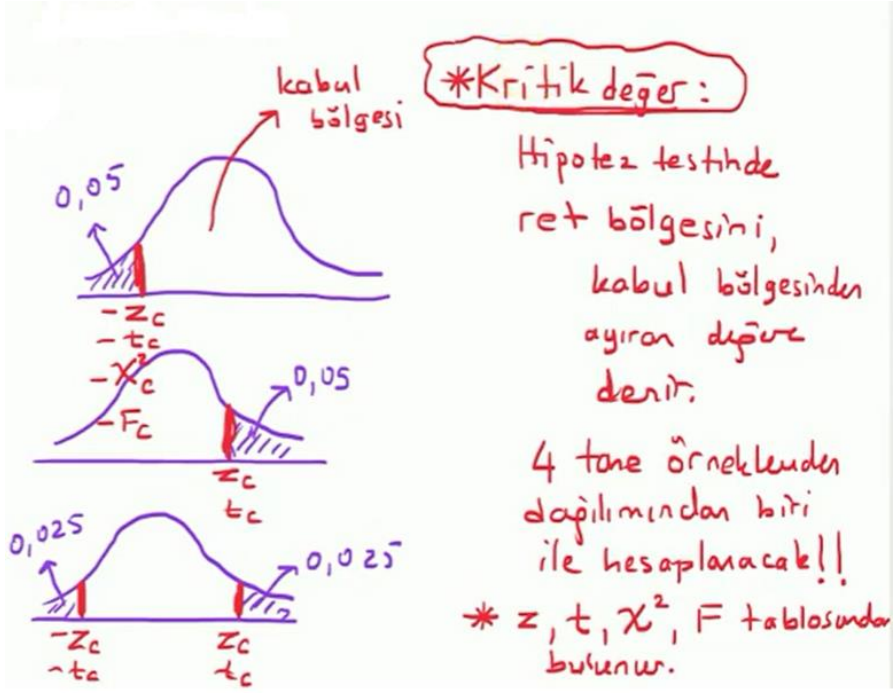 kabul
bölgesi
0,05
-Zc
-tc
-χ²c
-Fc
0,05
Zc
tc
0,025
0,025
-Zc
-tc
Zc
tc
*Kritik değer:
Hipotez testinde
ret bölgesini,
kabul bölgesinden
ayıran değere
denir.
4 tane örneklemden
dağılımından biri
ile hesaplanacak!!
* z, t, χ², F tablosundan
bulunur.